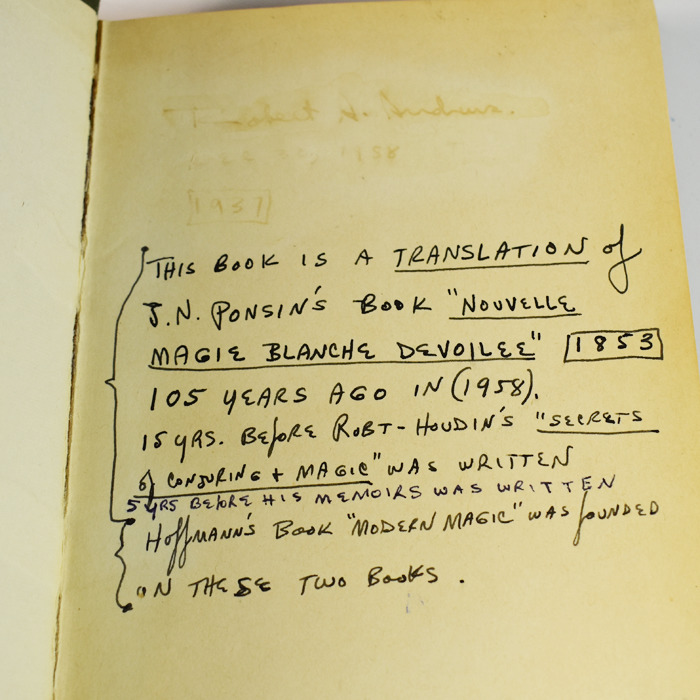 THIS BOOK IS A TRANSLATION of
J.N. PONSIN'S BOOK "NOUVELLE
MAGIE BLANCHE DEVOILEE" 1853
105 YEARS AGO IN (1958).
15 YRS. BEFORE ROBT-HOUDIN'S "SECRETS
of CONJURING + MAGIC" WAS WRITTEN
5 YRS BEFORE HIS MEMOIRS WAS WRITTEN
HoffMANN'S BOOK "MODERN MAGIC" WAS fOUNDED
ON THESE TWO BOOKS.